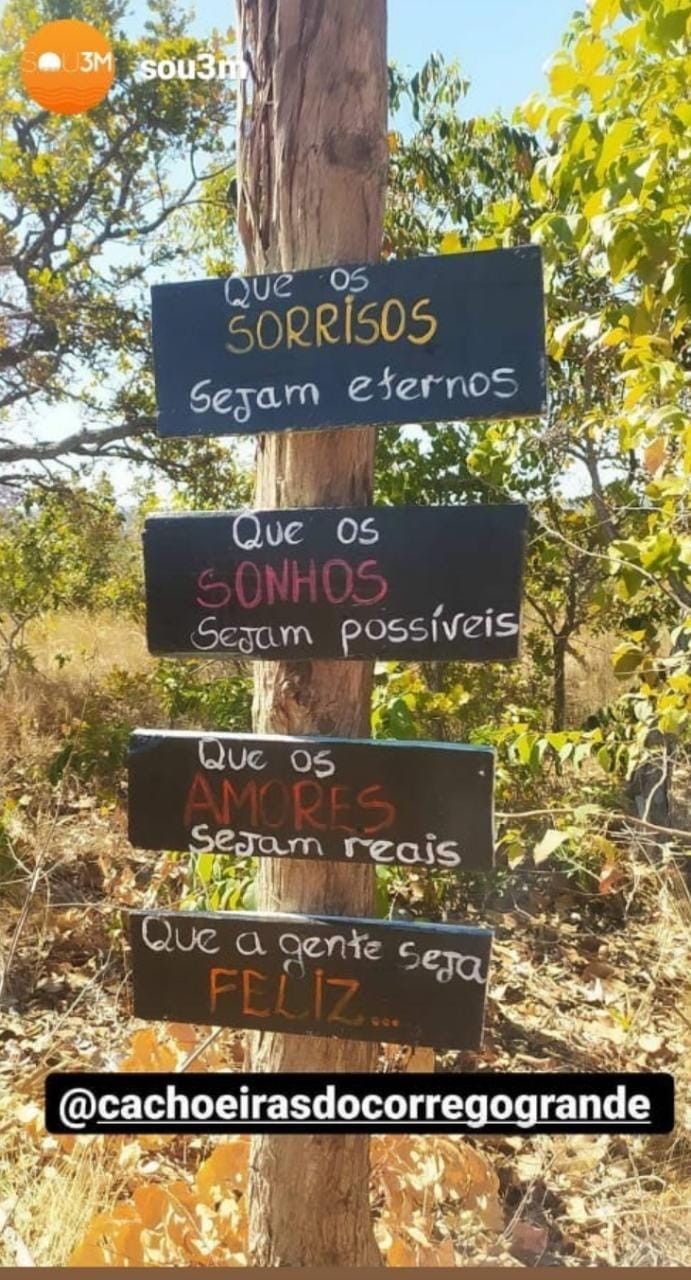 SOU3M
sou3m
Que os
SORRISOS
Sejam eternos
Que os
SONHOS
Sejam possíveis
Que os
AMORES
Sejam reais
Que a gente seja
FELIZ...
@cachoeirasdocorregogrande